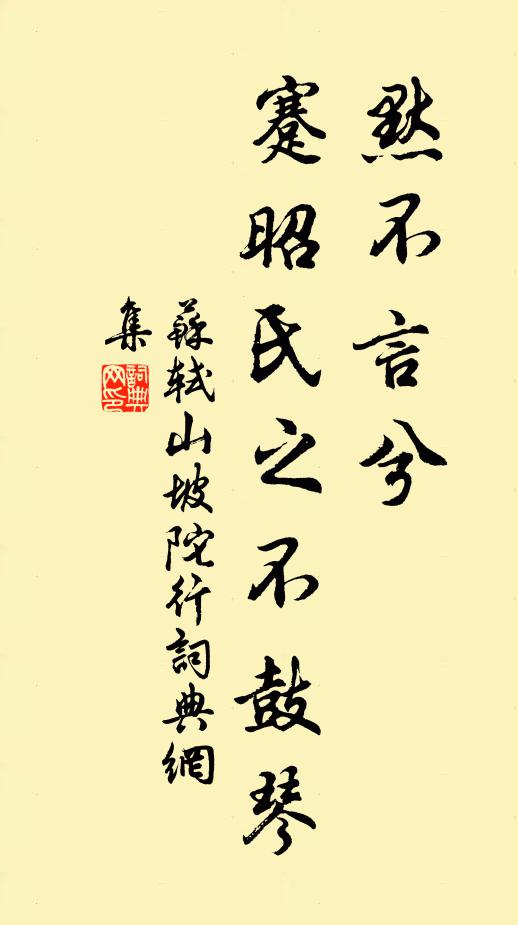 黙不言兮
蹇昭氏之不鼓琴
蘇軾山坡陀行詞典網
集
詞典
网印